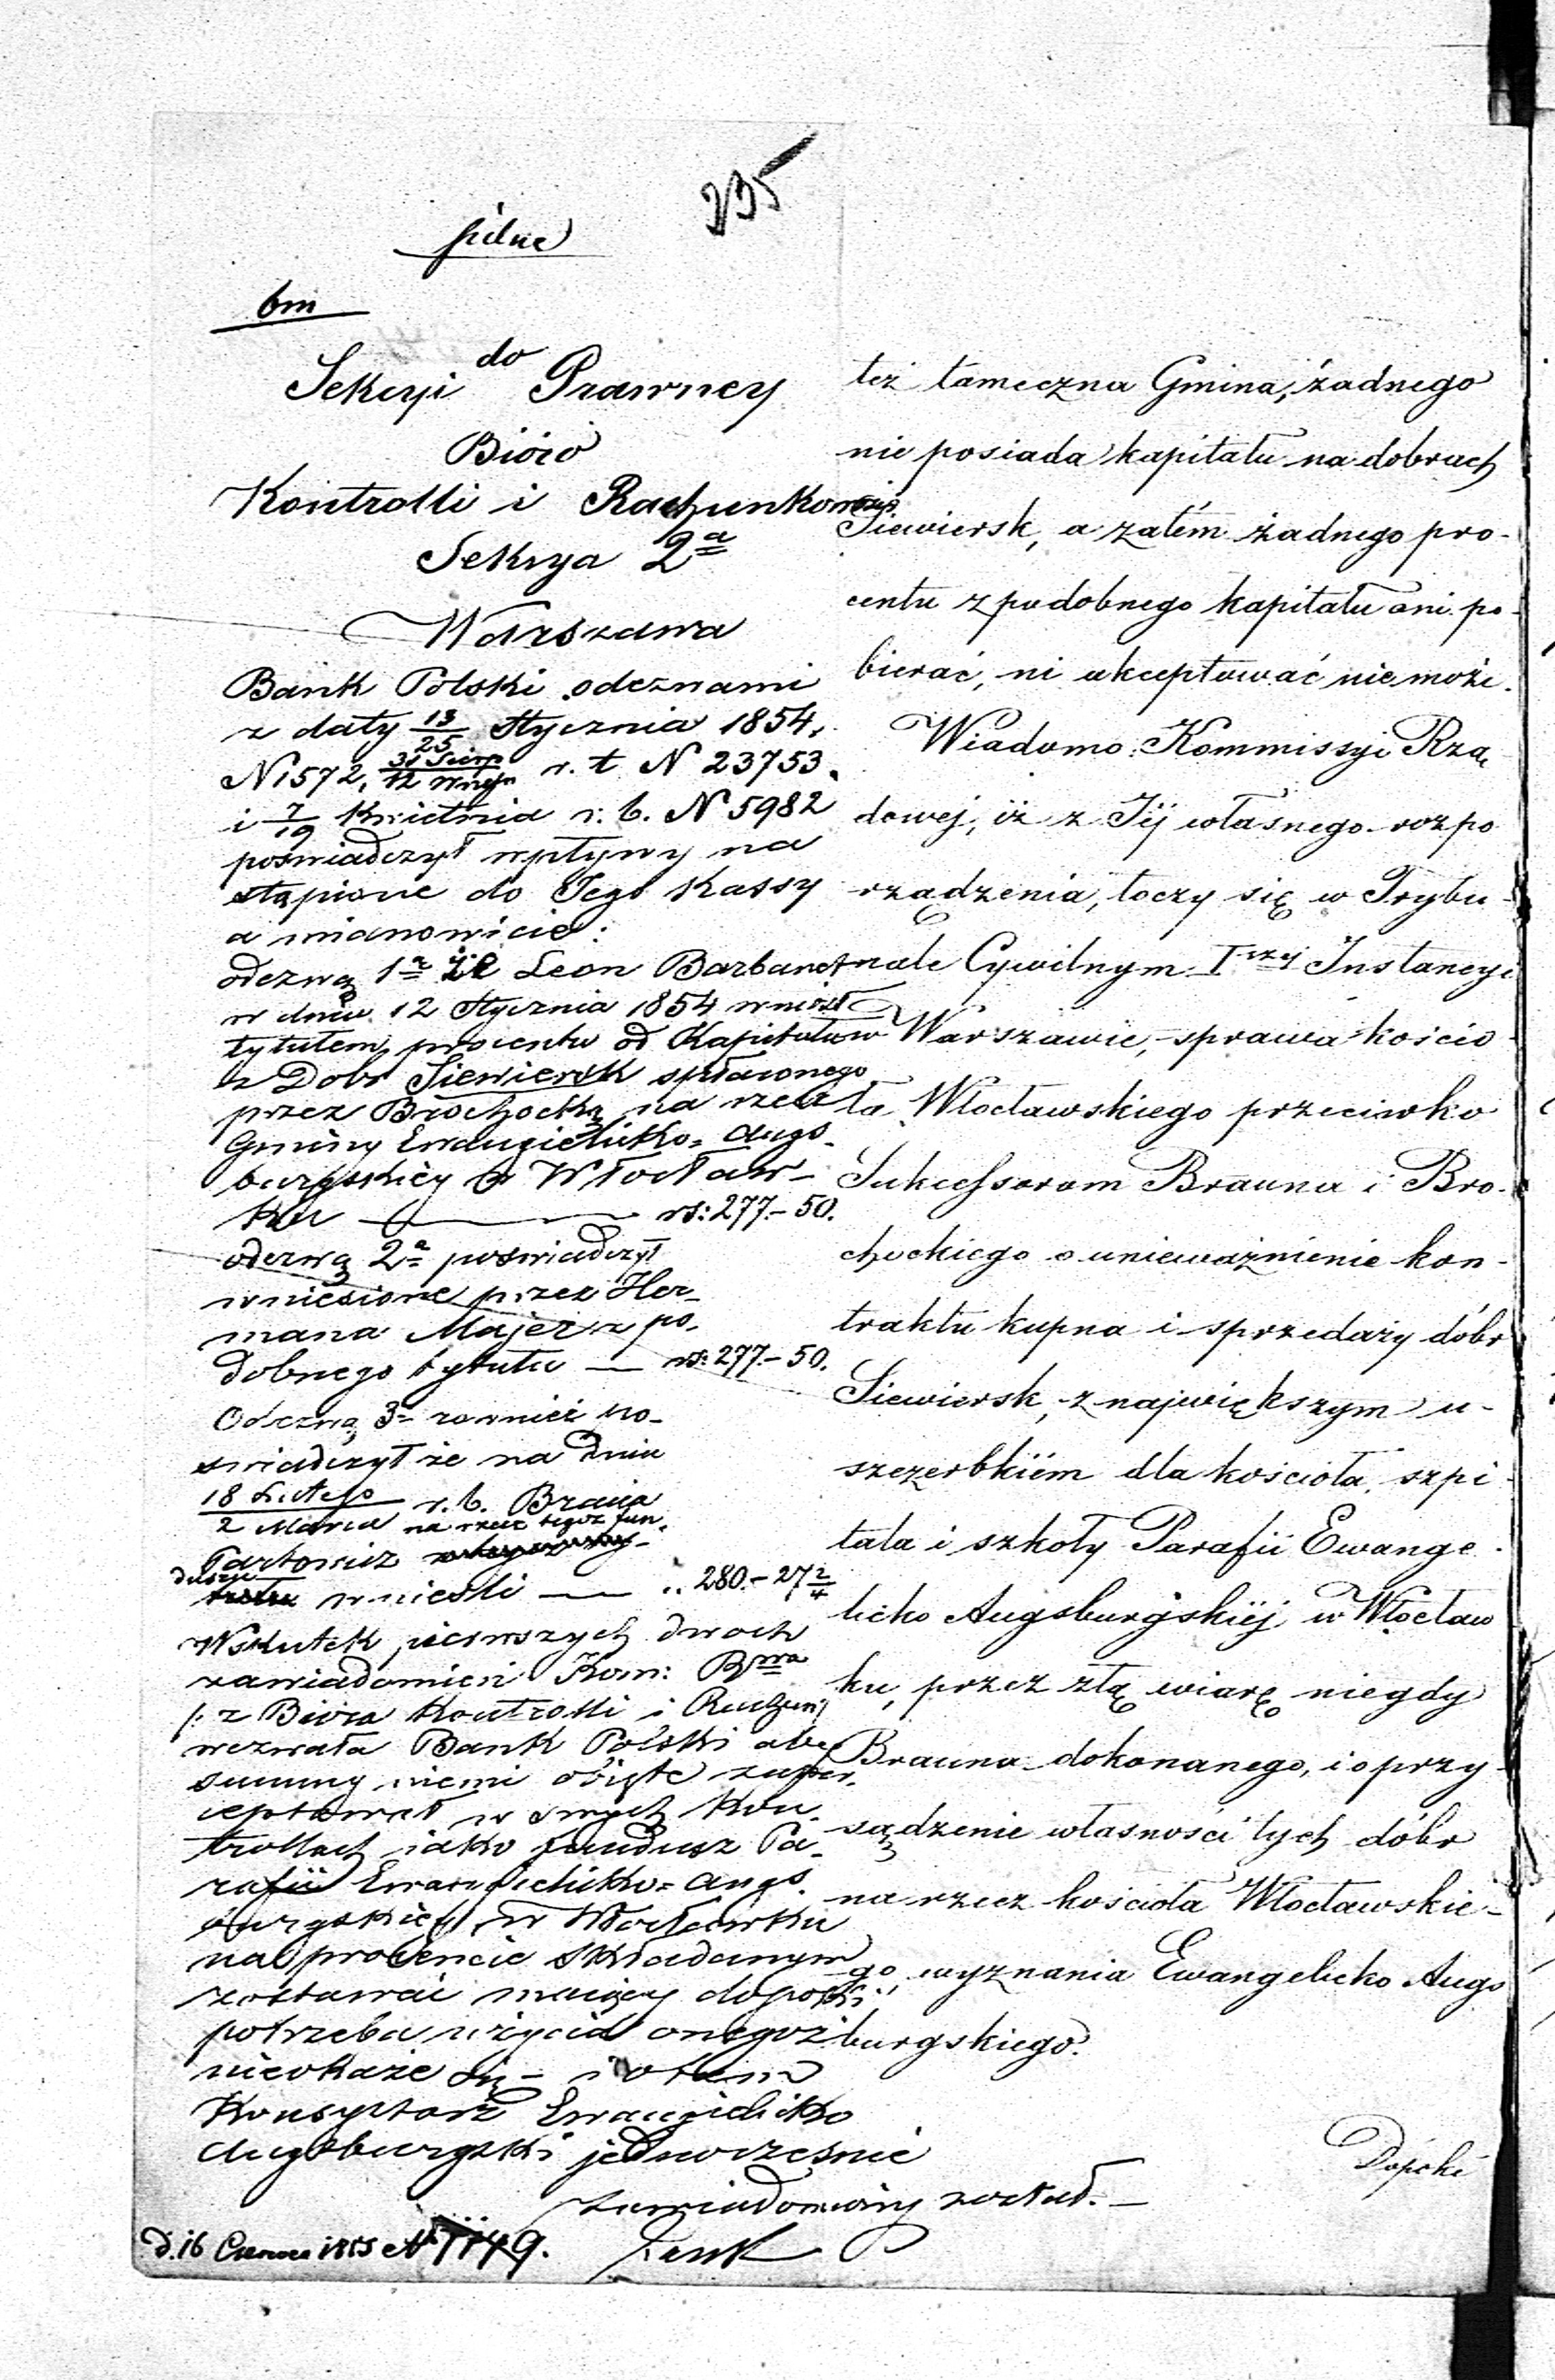 235
pilne
bm
do
Sekcyi Prawney
Bióro
Kontrolli i Rachunkowości
Sekcya 2a
Warszawa
Bank Polski odezwami
z daty 13/25 Stycznia 1854,
N 1572, 31 Sierp/12 Wrześn r. t. N 23753.
i 7/19 Kwietnia r. b. N 5982
poświadczył wpływy na
stąpione do Jego Kassy
a mianowicie:
odezwą 1a że Leon Barbanet
w dniu 12 Stycznia 1854 wniósł
tytułem procentu od Kapitału
z Dobr Siewiersk spłaconego
przez Brochocką na rzecz
Gminy Ewangielicko=Augs-
burgskiéy w Włocław-
ku — rs: 277.-50.
odezwą 2a poświadczył
wniesione przez Her-
mana Majer z po-
dobnego tytułu — rs: 277.-50.
Odezwą 3a rownież po-
świadczył że na dniu
18 Lutego/2 Marca r. b. Bracia
na rzecz tegoż fun-
Tartowicz
duszu wnieśli — „ 280.-27 2/4
Wskutek pierwszych dwoch
zawiadomień Kom: Rwa
/: z Bióra Kontrolli i Rachun:/
wezwała Bank Polski aby
summy niemi objęte
w swych Kon-
trollach iako fundusz Pa-
rafii Ewangielicko=Augs-
burgskiéj w Włocławku
na procencie składanym
zostawać maiący dopóki
potrzeba użycia onegoż
nieokaże się - i o tem
Konsystorz Ewangielicko
Augsburgski jednocześnie
zawiadomiony został.—
d. 16 Czerwca 1855 N 1149.
też tameczna Gmina, żadnego
nie posiada kapitału na dobrach
Siewiersk, a zatém żadnego pro-
centu z podobnego kapitału ani po-
bierać, ni akceptować nie może.
Wiadomo Kommissyi Rzą
dowej, iż z Jéj własnego rozpo
rządzenia, toczy się w Trybu-
nale Cywilnym Iszéj Instancyi
w Warszawie, sprawa kościo-
ła Włocławskiego przeciwko
Sukcessorom Brauna i Bro-
chockiego o unieważnienie kon-
traktu kupna i sprzedaży dóbr
Siewiersk, z największym u-
szczerbkiém dla kościoła, szpi-
tala i szkoły Parafii Ewange-
licko Augsburgskiéj w Włocław
ku, przez złą wiarę niegdy
Brauna dokonanego, i o przy-
sądzenie własności tych dóbr
na rzecz kościoła Włocławskie-
go, wyznania Ewangelicko Augs
burgskiego.